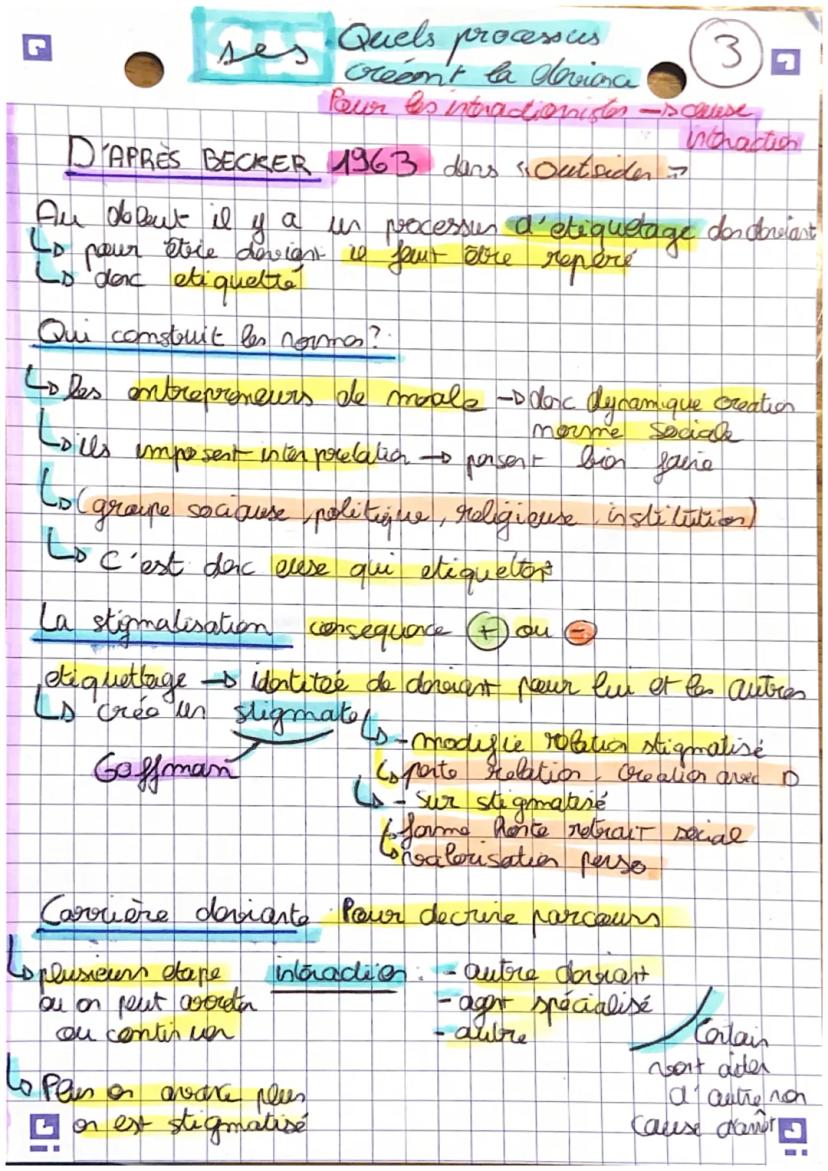 ses
Quels processus
créent la déviance
3
Pour les intractionistes → cause
intraction
D'APRÈS BECKER 1963 dans "Outsider"
Au debut il y a un processus d'etiquetage des deviant
↳ pour être deviant il faut être repéré
↳ donc etiquetté
Qui construit les normes ?
↳ les entrepreneurs de morale → donc dynamique creation
norme sociale
↳ ils imposent interpretation → pensent bien faire
↳ (groupe sociause, politique, religieuse, institution)
↳ C'est donc euse qui etiquettent
La stigmatisation consequence + ou -
etiquettage → identitée de deviant pour lui et les autres
↳ crée un stigmate
Goffman
↳ - modifie relation stigmatisé
↳ perte relation, creation avec D
↳ - Sur stigmatisé
↳ forme honte retrait social
↳ valorisation perso
Carrière deviante Pour decrire parcours
↳ plusieurs etape
ou on peut arreter
ou continuer
intéraction : - autre deviant
- agent spécialisé
- autre
Certain
vont aider
d'autre non
cause d'arrêt
↳ Plus on avance plus
on est stigmatisé